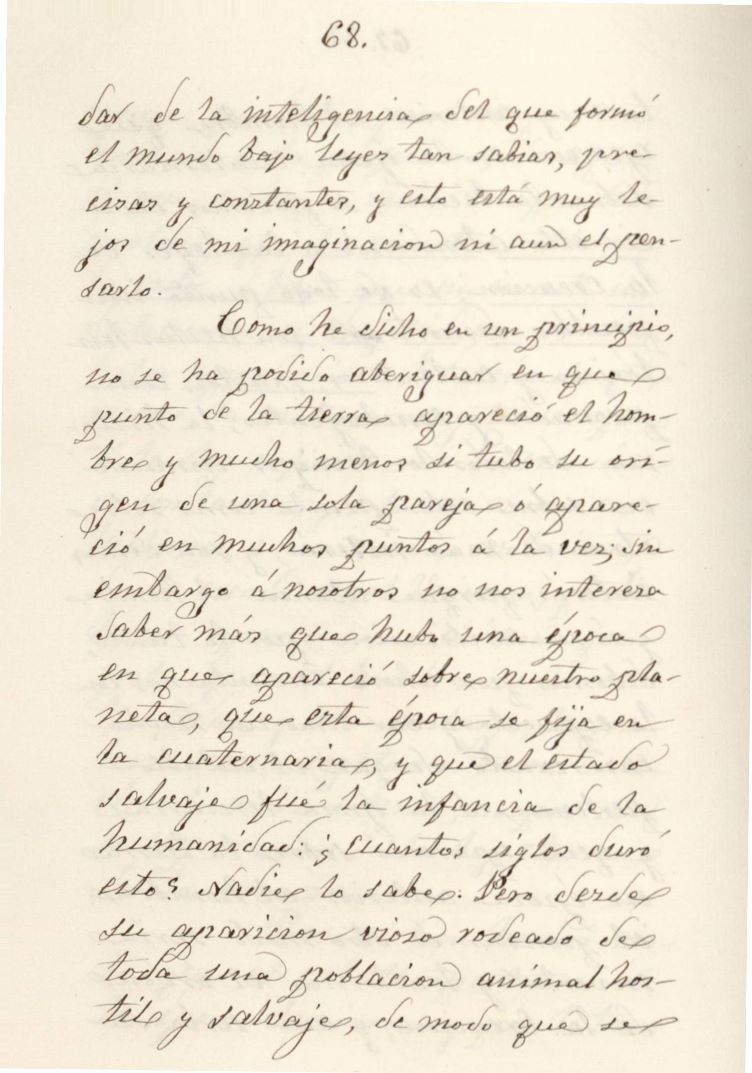 68.
dar de la inteligencia del que formó
el mundo bajo leyes tan sabias, pre-
cisas y constantes, y esto está muy le-
jos de mi imaginacion ni aun el pen-
sarlo.
Como he dicho en un principio,
no se ha podido aberiguar en que
punto de la tierra apareció el hom-
bre y mucho menos si tubo su orí-
gen de una sola pareja ó apare-
ció en muchos puntos á la vez; sin
embargo á nosotros no nos interesa
saber más que hubo una época
en que apareció sobre nuestro pla-
neta, que esta época se fija en
la cuaternaria, y que el estado
salvaje fué la infancia de la
humanidad: ¿cuantos siglos duró
esto? Nadie lo sabe. Pero desde
su aparicion vioso rodeado de
toda una poblacion animal hos-
til y salvaje, de modo que se